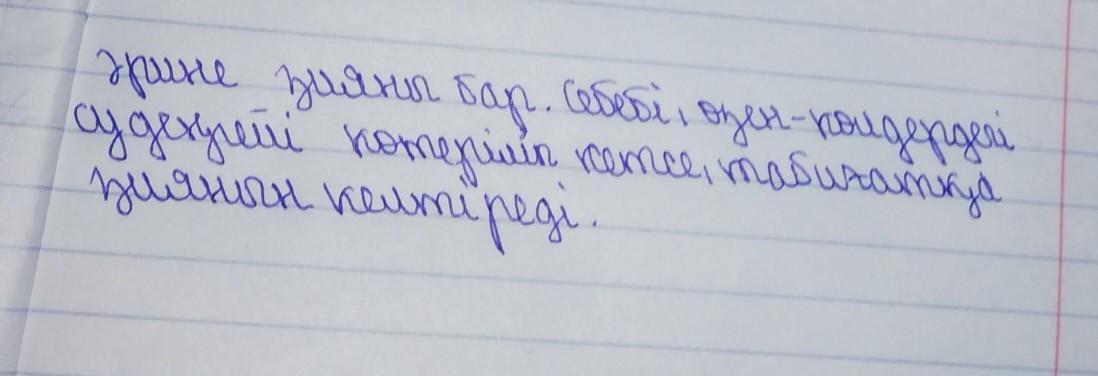 Әрине зияны бар. Себебі, өзен-көлдердегі
су деңгейі көтеріліп кетсе, табиғатқа
зиянын келтіреді.